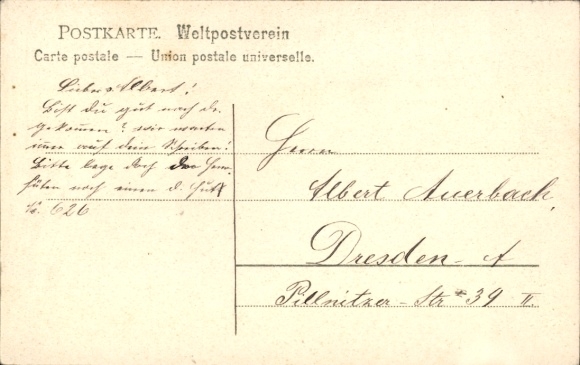 POSTKARTE. Weltpostverein
Carte postale — Union postale universelle.
Lieber Albert!
Bist du gut nach Dr.
gekommen? wir warten
immer auf dein Schreiben!
Bitte lege doch
noch einen d.
No. 626
Herrn
Albert Auerbach,
Dresden - A
Pillnitzer - Str 39 II.